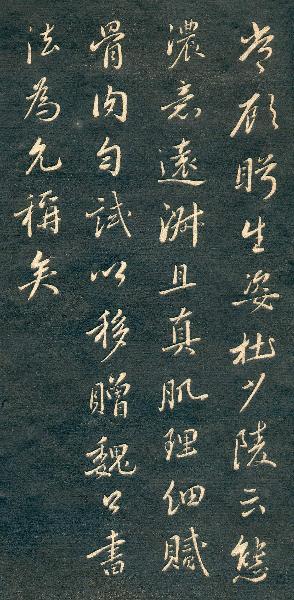 顧盻生姿杜少陵云態
濃意遠淑且真肌理細膩
骨肉勻試以移贈魏公書
法為允稱矣